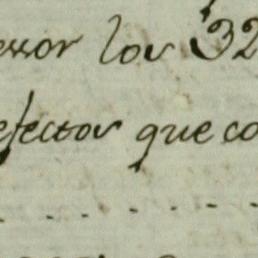 exor los 32
efectos que co